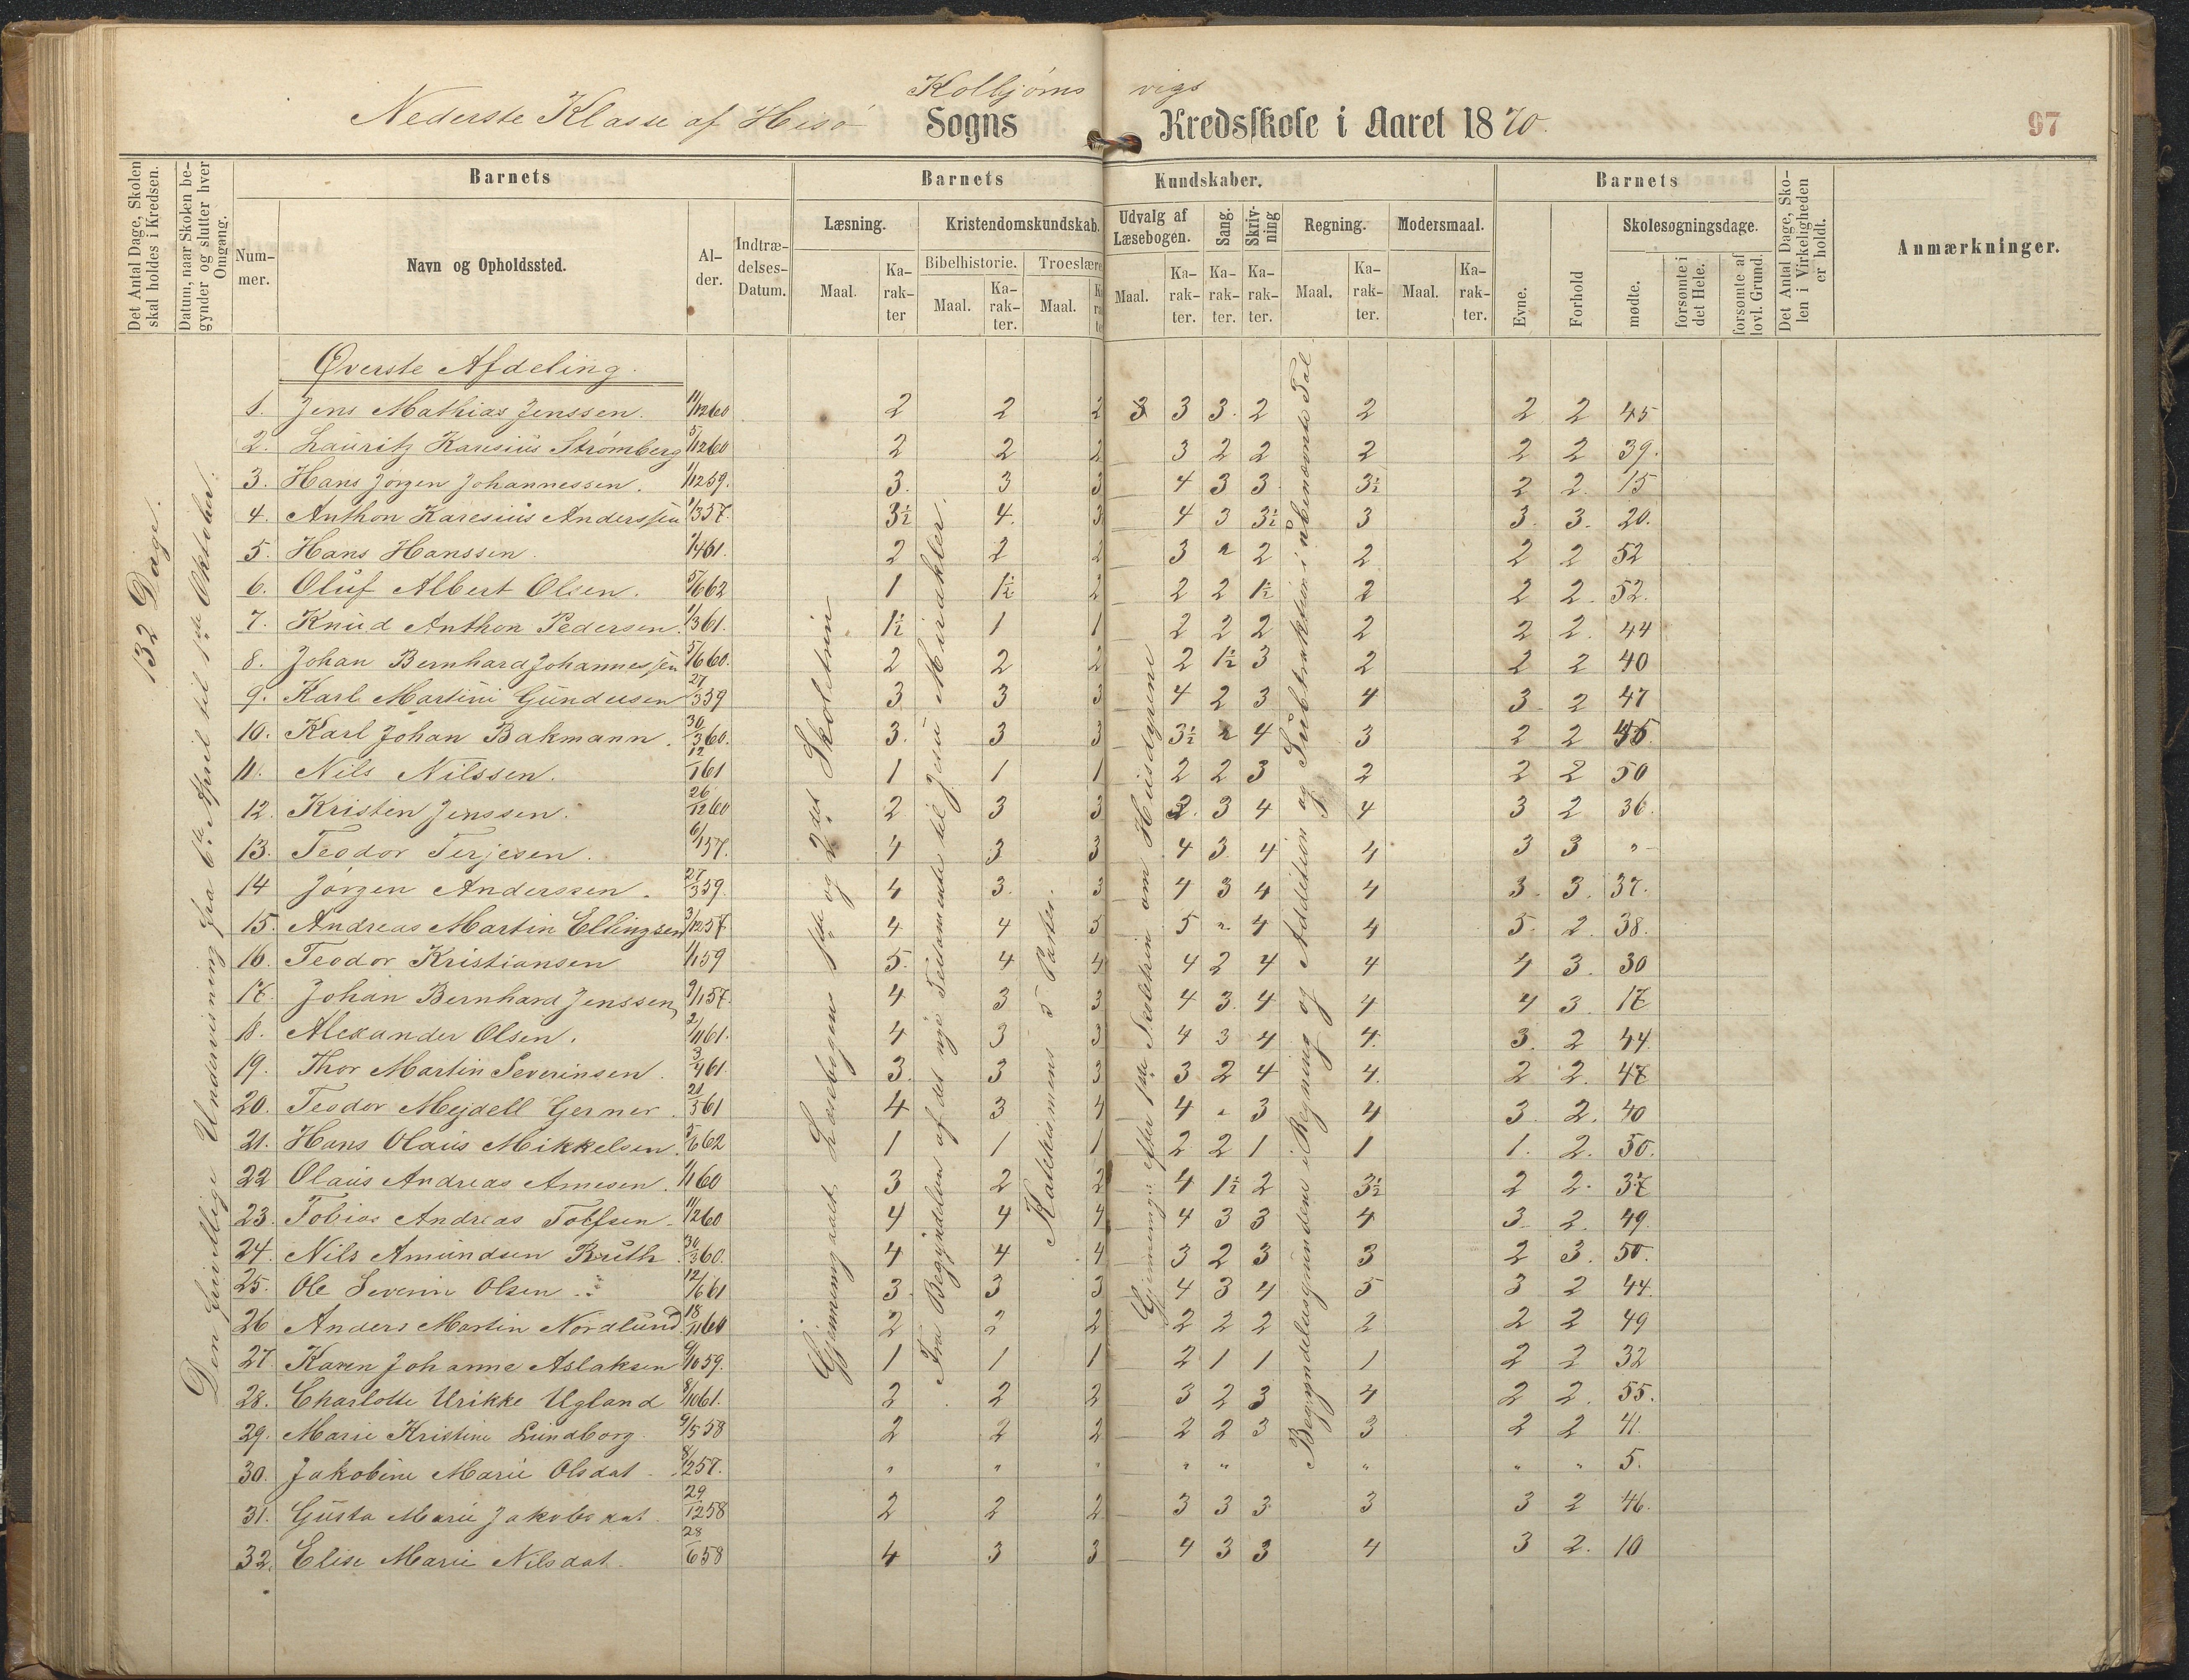 Nederste Klasse af Hisø Kolbjørnsvigs
Sogns Kredsskole i Aaret 1870.
97
Det Antal Dage, Skolen skal holdes i Kredsen.
Datum, naar Skolen begynder og slutter hver Omgang.
Barnets
Nummer.
Navn og Opholdssted.
Alder.
Indtrædelses-Datum.
Barnets Kundskaber.
Læsning.
Maal.
Karakter
Kristendomskundskab.
Bibelhistorie.
Maal.
Karakter.
Troeslære
Maal.
Udvalg af Læsebogen.
Maal.
Karakter.
Sang.
Karakter.
Skrivning
Karakter.
Regning.
Maal.
Karakter.
Modersmaal.
Maal.
Karakter.
Barnets
Evne.
Forhold
Skolesøgningsdage.
mødte.
forsømte i det Hele.
forsømte af lovl. Grund.
Det Antal Dage, Skolen i Virkeligheden er holdt.
Anmærkninger.
132 Dage.
Den frivillige Undervisning fra 6te April til 1ste Oktober.
Gjennemgaaet Læsebogens 1ste og 2det Skoletrin
Fra Begyndelsen af det nye Testamente til Jesu Mirakler.
Katekismens 5 Parter.
Gjennemg. efter 1ste Skoletrin om Husdyrene
Begyndelsesgrundene i Regning og Addition og Subtraktion i ubenævnte Tal
Øverste Afdeling.
1. Jens Mathias Jenssen. 11/12 60 2 2 2 3 3 3. 2 2 2 2 45
2. Lauritz Karesius Strømberg 5/12 60 2 2 2 3 2 2 2 2 2 39.
3. Hans Jørgen Johannessen. 1/12 59. 3. 3 3 4 3 3 3½ 2 2. 15
4. Anthon Karesius Anderssen 1/3 57. 3½ 4. 3 4 3 3½ 3 3. 3. 20.
5. Hans Hanssen. 1/4 61. 2 2 2 3 " 2 2 2 2 52
6. Oluf Albert Olsen. 5/6 62 1 1½ 2 2 2 1½ 2 2 2. 52.
7. Knud Anthon Pedersen. 1/3 61. 1½ 1 1 2 2 2 2 2 2. 44
8. Johan Bernhard Johannessen 5/6 60. 2 2 2 2 1½ 3 2 2 2 40
9. Karl Martini Gundersen 27/3 59 3 3 3 4 2 3 4 3 2 47
10. Karl Johan Bakmann. 30/3 60. 3. 3 3 3½ " 4 3 2 2 45
11. Nils Nilssen. 12/1 61 1 1 1 2 2 3 2 2 2 50
12. Kristen Jenssen. 26/12 60 2 3 3 3. 3 4 4 3 2 36.
13. Teodor Terjesen. 6/1 57. 4 3 3 4 3 4 4 3 3 "
14 Jørgen Anderssen. 27/3 59. 4 3. 3 4 3 4 4 3. 3. 37.
15. Andreas Martin Ellingsen 3/12 57 4 4 5 5 " 4 4 5. 2. 38.
16. Teodor Kristiansen 1/1 59 5. 4 4 4 2 4 4 4 3. 30
17. Johan Bernhard Jenssen 9/1 57. 4 3 3 4 3. 4 4 4 3. 17
18. Alexander Olsen. 2/11 61. 4 3 3 4 3 4 4. 3. 2 44
19. Thor Martin Severinsen. 3/4 61. 3. 3 3 3 2 4 4. 2 2. 47
20. Teodor Mejdell Gerner. 21/5 61 4 3 4 4 " 3 4 3. 2. 40
21. Hans Olaus Mikkelsen. 5/6 62 1 1 1 2 2 1 1 1. 2. 50.
22 Olaus Andreas Arnesen. 1/1 60 3 2 2 4 1½ 2 3½ 2 2. 37
23. Tobias Andreas Tolfsen 11/12 60 4 4 4 4 3 3 4 3 2. 49.
24. Nils Amundsen Bruth. 30/3 60. 4 4 4 3 2 3 3 2 3. 50.
25. Ole Severin Olsen 12/6 61 3. 3 3 4 3 4 5 3 2 44.
26 Anders Martin Nordlund. 18/11 60 2 2 2 2 2 2 2 2 2 49
27. Karen Johanne Aslaksen 9/10 59. 1 1 1 2 1 1 1 2 2 32
28. Charlotte Urikke Ugland 8/10 61. 2 2 2 3 2 3 4 2 2. 55.
29. Marie Kristine Lundborg. 9/5 58 2 2 2 2 2 3 3 2 2 41.
30. Jakobine Marie Olsdat. 8/2 57. " " " " " " " " 5.
31. Gusta Marie Jakobsdat. 29/12 58 2 2 2 3 3 3 3 3 2 46.
32. Elise Marie Nilsdat. 28/6 58 4 3 3 4 3 3 4 3 2. 10